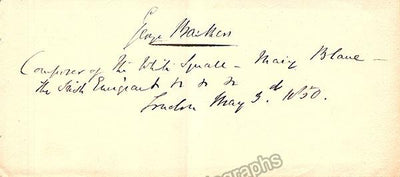 George Barker
Composer of the White Squall – Mary Blane –
the Irish Emigrant &c &c &c
London May 3.d 1850.
ographs